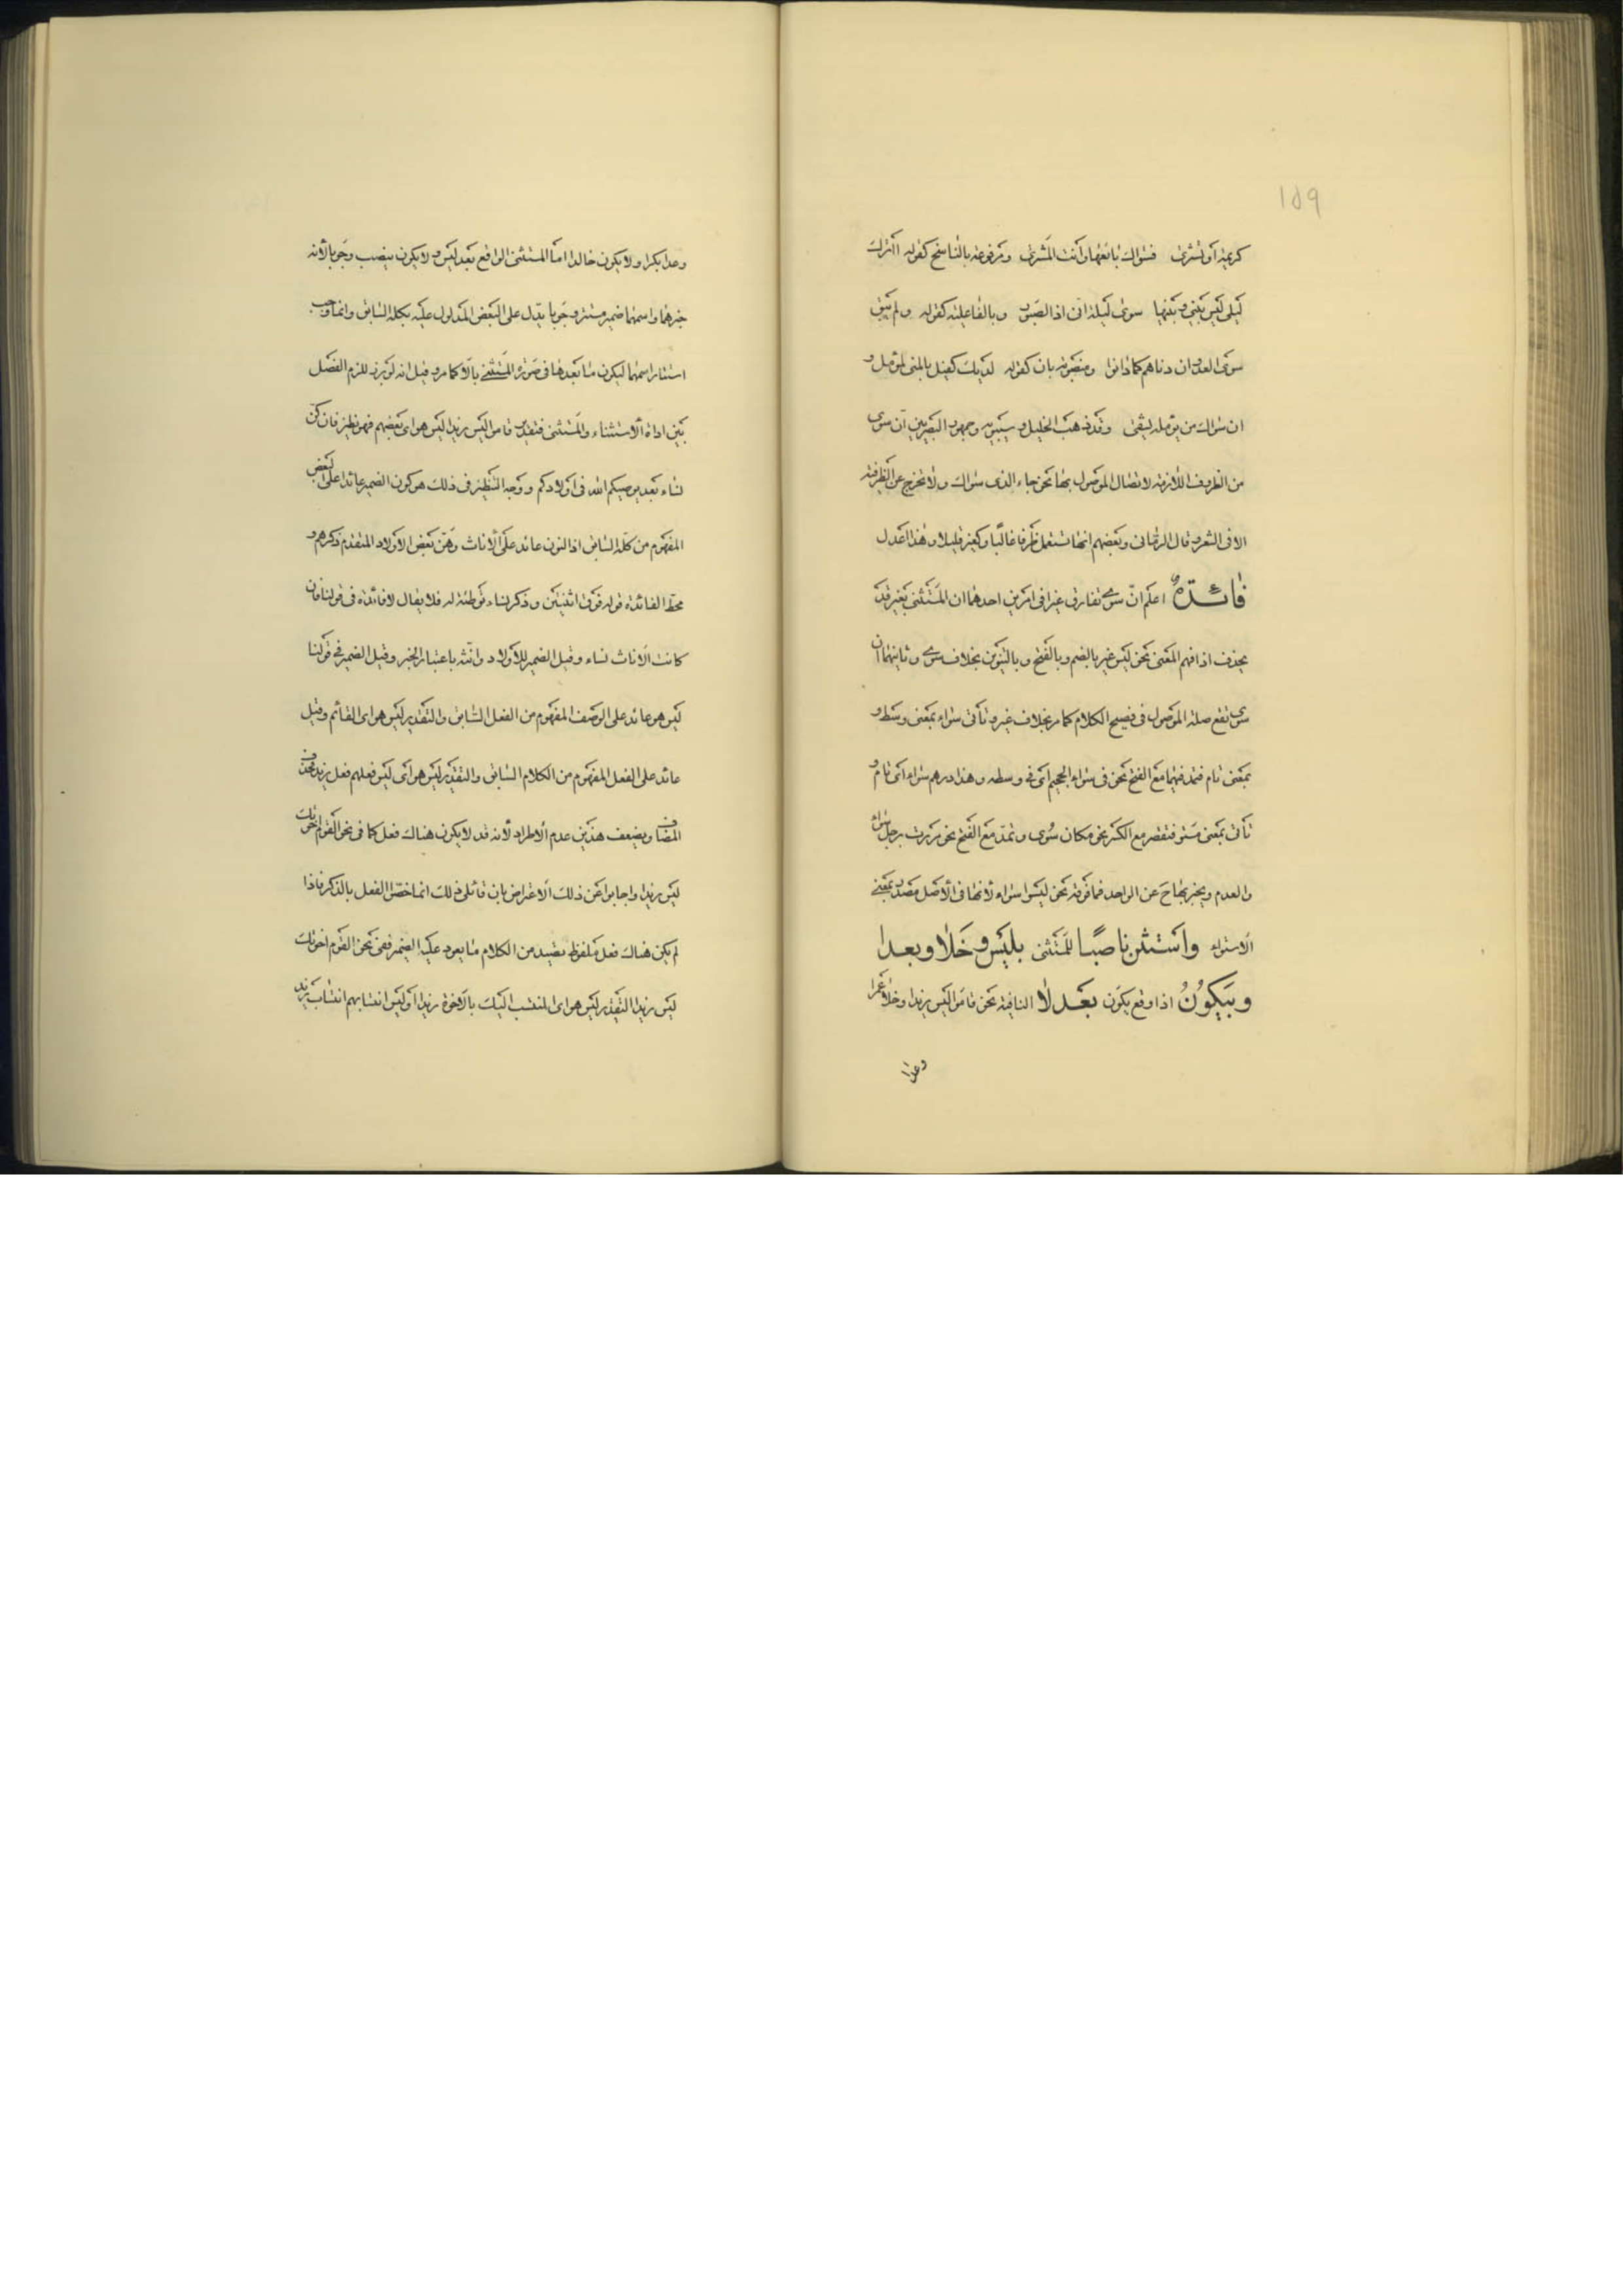 ١٥٩
كريمة أو تشترى فسواك بائعها وأنت المشترى ومرفوعة بالناسخ كقوله أأترك
ليلى ليس بيني وبينها سوى ليلة انى اذا لصبور وبالفاعلية كقوله ولم يبق
سوى العدوان دناهم كما دانوا ومنصوبة بان كقوله لديك كفيل بالمنى لمؤمل و
ان سواك من يؤمله يشقى وقد ذهب الخليل وسيبويه وجمهور البصريين أن سوى
من الظروف اللازمة لاتصال الموصول بها نحو جاء الذى سواك ولا تخرج عن الظرفية
الا فى الشعر وقال الرمانى وبعضهم انها تستعمل ظرفا غالبًا وكغير قليلا وهذا اعدل
فائدة اعلم انّ سوى تفارق غيرا فى امرين احدهما ان المستثنى بغير قد
يحذف اذا فهم المعنى نحو ليس غير بالضم وبالفتح وبالتنوين بخلاف سوى وثانيهما ان
سوى تقع صلة الموصول فى فصيح الكلام كما مر بخلاف غير وتأتى سواء بمعنى وسط و
بمعنى تام فتمد فيهما مع الفتح نحو فى سواء الجحيم أى فى وسطه وهذا درهم سواء أى تام و
تأتى بمعنى مستو فتقصر مع الكسر نحو مكان سُوى وتمدّ مع الفتح نحو مررت برجل سواء
والعدم ويخبر بها ح عن الواحد فما فوقه نحو ليسوا سواء لأنها فى الأصل مصدر بمعنى
الاستواء واستثن ناصبًا للمستثنى بليس وخلا وبعدا
وبيكونُ اذا وقع يكون بعد لا النافية نحو قاموا ليس زيدا وخلا عمرا
وعدا
وعدا بكرا ولا يكون خالدا اما المستثنى الواقع بعد ليس ولا يكون ينصب وجوبا لأنه
خبرهما واسمهما ضمير مستتر وجوبا يدل على البعض المدلول عليه بكله السابق وانما وجب
استتار اسمهما ليكون ما بعدها فى صورة المستثنى بالا كما مر وقيل انه لو برز للزم الفصل
بين اداة الاستثناء والمستثنى فتقدير قاموا ليس زيدا ليس هو اى بعضهم فهو نظير فان كنّ
نساء بعد يوصيكم الله فى أولادكم ووجه التنظير فى ذلك هو كون الضمير عائدا على البعض
المفهوم من كله السابق اذ النون عائد على الاناث وهنّ بعض الاولاد المتقدم ذكرهم و
محط الفائدة قوله فوق اثنتين وذكر نساء توطئة له فلا يقال لا فائدة فى قولنا فان
كانت الاناث نساء وقيل الضمير للأولاد وانثه باعتبار الخبر وقيل الضمير فى قولنا
ليس هو عائد على الوصف المفهوم من الفعل السابق والتقدير ليس هو اى القائم وقيل
عائد على الفعل المفهوم من الكلام السابق والتقدير ليس هو أى ليس فعلهم فعل زيد فحذف
المضاف ويضعف هذين عدم الاطراد لأنه قد لا يكون هناك فعل كما فى نحو القوم اخوتك
ليس زيدا واجابوا عن ذلك الاعتراض بان قائلى ذلك انما خصّوا الفعل بالذكر فاذا
لم يكن هناك فعل ملفوظ تصيد من الكلام ما يعود عليه الضمير ففى نحو القوم اخوتك
ليس زيدا التقدير ليس هو اى المنتسب اليك بالاخوة زيدا أو ليس انتسابهم انتساب زيد